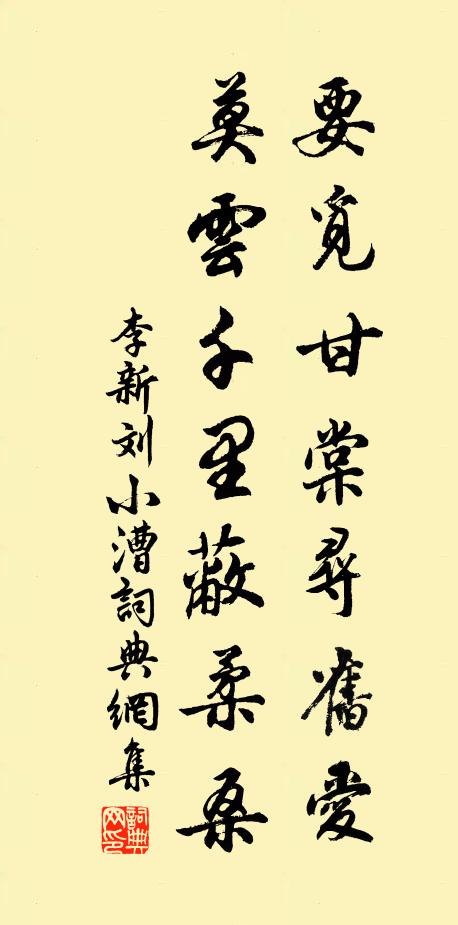 要覓甘棠尋舊愛
莫雲千里蔽柔桑
李新刘小漕詞典網集
詞典網印